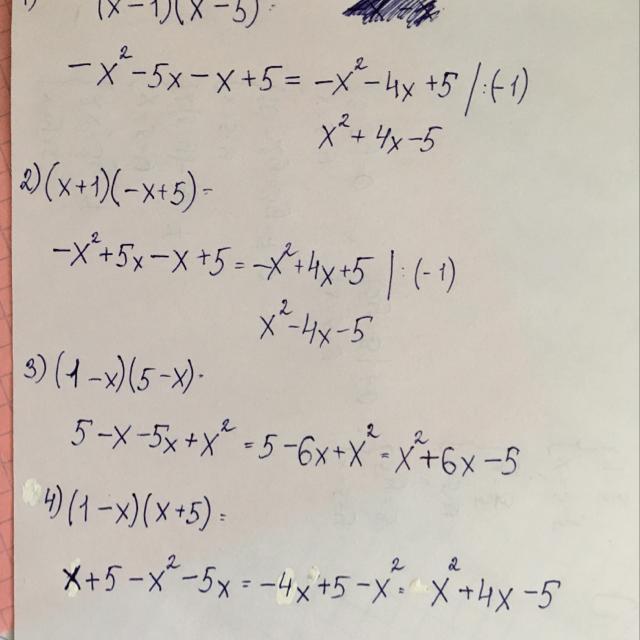 1) (x-1)(x-5)-
-x²-5x-x+5=-x²-4x+5 /:(-1)
x²+4x-5
2)(x+1)(-x+5)-
-x²+5x-x+5=-x²+4x+5 |:(-1)
x²-4x-5
3)(1-x)(5-x)-
5-x-5x+x²=5-6x+x²=x²+6x-5
4)(1-x)(x+5)=
x+5-x²-5x=-4x+5-x²=x²+4x-5